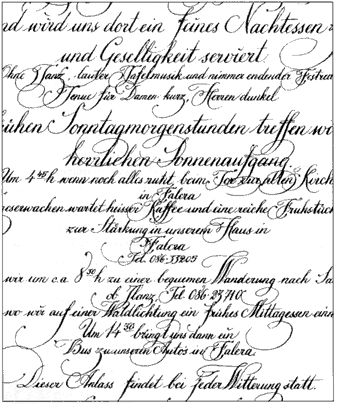 nd wird uns dort ein feines Nachtessen
und Geselligkeit serviert.
Ohne Tanz, lauter Tafelmusik und nimmer endender
Tenue für Damen kurz, Herren dunkel
Sonntagmorgenstunden treffen wi
herrlichen Sonnenaufgang.
Um 4 45 h wenn noch alles ruht, beim Tor zur alten Kirch
in Falera
wartet heisser Kaffee und eine reiche Frühstück
zur Stärkung in unserem Haus in
Falera
Tel. 086
wir um c.a 8 30 h zu einer bequemen Wanderung nach
ob Ilanz, Tel. 086
wo wir auf einer Waldlichtung ein frühes Mittagessen
Um 14 30 bringt uns dann ein
Bus zu unseren Auto's in Falera.
Dieser Anlass findet bei jeder Witterung statt.